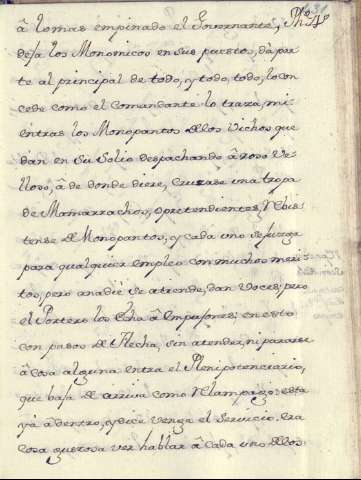 â lo mas empinado el Governante,
deja los Monomicos en sus puestos, dà par
te al principal de todo, y todo, todo, lo con
cede como el Comandante lo traza, mi-
entras los Monopantos dlos Vichos que
dan en Su Solio despachando â roso Ve-
lloso, â de donde diere, Cruzase una tropa
de Mamarrachos, o pretendientes, Vbis-
tense de Monopantos, y cada uno se juzga
para qualquier empleo con muchos meri-
tos, pero anadie se atiende, dan voces, pero
el Portero los êcha â Empujones: en esto
con pasos de flecha, sin atender, ni pararse
â cosa alguna entra el Plenipotenciario,
que baja de arriva como Relampago: esta
yà âdentro, y dice venga el Servicio. era
cosa gustosa ver hablar â cada uno dellos